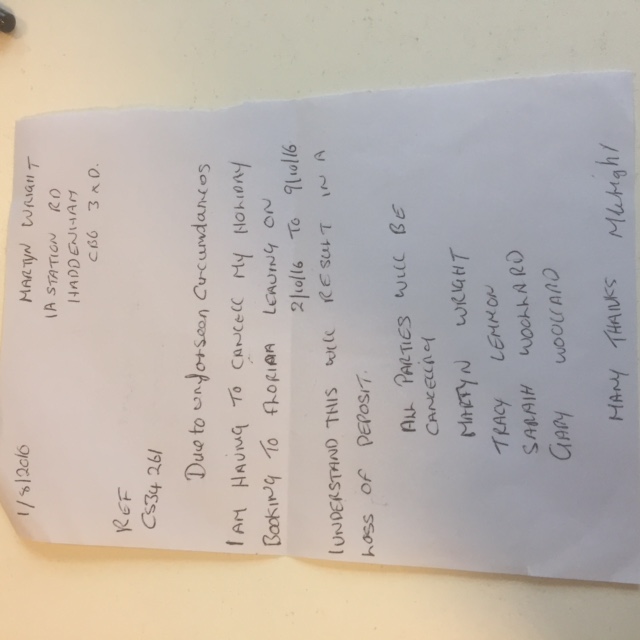 MARTYN WRIGHT
1A STATION RD
HADDENHAM
CB6 3XD.
1/8/2016
REF
CS34261
Due to unforseen Circumdances
I AM HAVING TO CANCELL MY HOLIDAY
BOOKING TO FLORIDA LEAVING ON
2/10/16 TO 9/10/16
I UNDERSTAND THIS WILL RESULT IN A
LOSS OF DEPOSIT.
ALL PARTIES WILL BE
MARTYN WRIGHT
TRACY LEMMON
SARAH WOOLLARD
GARY WOOLLARD
MANY THANKS MWright